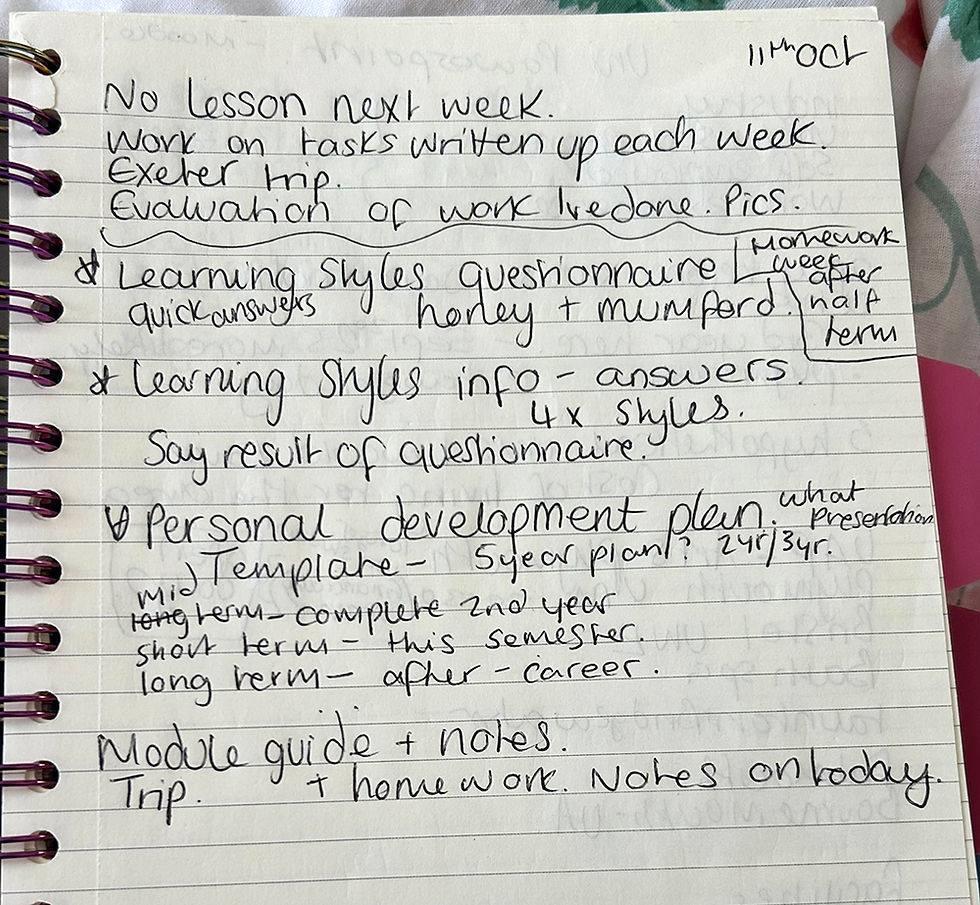 11th Oct
No lesson next week.
Work on tasks written up each week.
Exeter trip.
Evaluation of work I've done. Pics.
* Learning Styles questionnaire
Homework
week
after
half
term
quick answers honley + mumford.
* Learning Styles info - answers.
4 x Styles.
Say result of questionnaire.
* Personal development plan. what
Presentation
Template - 5 year plan? 2yr/3yr.
mid
long term - complete 2nd year
short term - this semester.
long term - after - career.
Module guide + notes.
Trip. + homework. Notes on today.